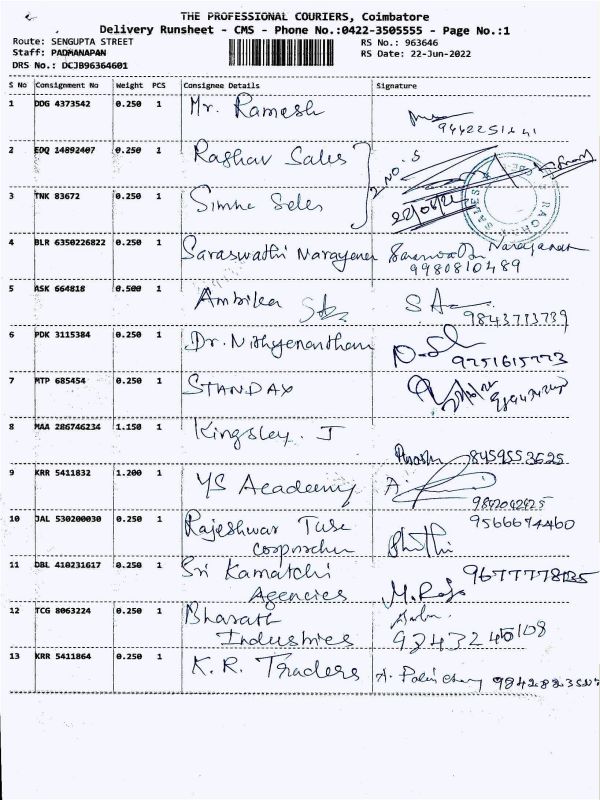 THE PROFESSIONAL COURIERS, Coimbatore
Delivery Runsheet - CMS - Phone No.:0422-3505555 - Page No.:1
Route: SENGUPTA STREET
Staff: PADMANAPAN
DRS No.: DCJB96364601
RS No.: 963646
RS Date: 22-Jun-2022
S No Consignment No Weight PCS Consignee Details Signature
1 DDG 4373542 0.250 1 Mr. Ramesh
2 EOQ 14892407 0.250 1 Raghav Sales
2 NO.S
3 TNK 83672 0.250 1 Simha Sales
22/06/22
4 BLR 6350226822 0.250 1 Saraswathi Narayanan Saraswathi Narayanan
9980810489
5 ASK 664818 0.500 1 Ambika
9843713739
6 PDK 3115384 0.250 1 Dr. Nithyenantham
9751615773
7 MTP 685454 0.250 1 STANDAX
8 MAA 286746234 1.150 1 Kingsley. J
8459553625
9 KRR 5411832 1.200 1 YS Academy
9842042425
10 JAL 530200030 0.250 1 Rajeshwar Tube
Corporation
9566674460
11 DBL 410231617 0.250 1 Sri Kamatchi
Agencies
M. Raja
12 TCG 8063224 0.250 1 Bharath
Industries
13 KRR 5411864 0.250 1 K.R. Traders